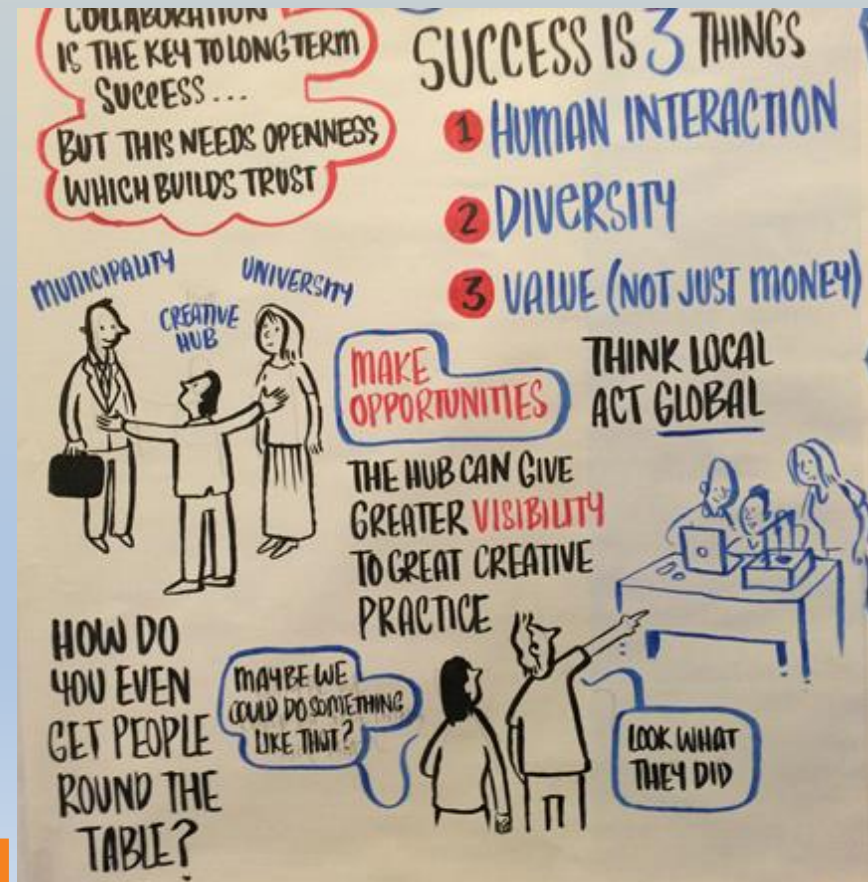 COLLABORATION
IS THE KEY TO LONG TERM
SUCCESS...
BUT THIS NEEDS OPENNESS
WHICH BUILDS TRUST
SUCCESS IS 3 THINGS
1 HUMAN INTERACTION
2 DIVERSITY
3 VALUE (NOT JUST MONEY)
MUNICIPALITY
CREATIVE
HUB
UNIVERSITY
MAKE
OPPORTUNITIES
THINK LOCAL
ACT GLOBAL
THE HUB CAN GIVE
GREATER VISIBILITY
TO GREAT CREATIVE
PRACTICE
HOW DO
YOU EVEN
GET PEOPLE
ROUND THE
TABLE?
MAYBE WE
COULD DO SOMETHING
LIKE THAT?
LOOK WHAT
THEY DID